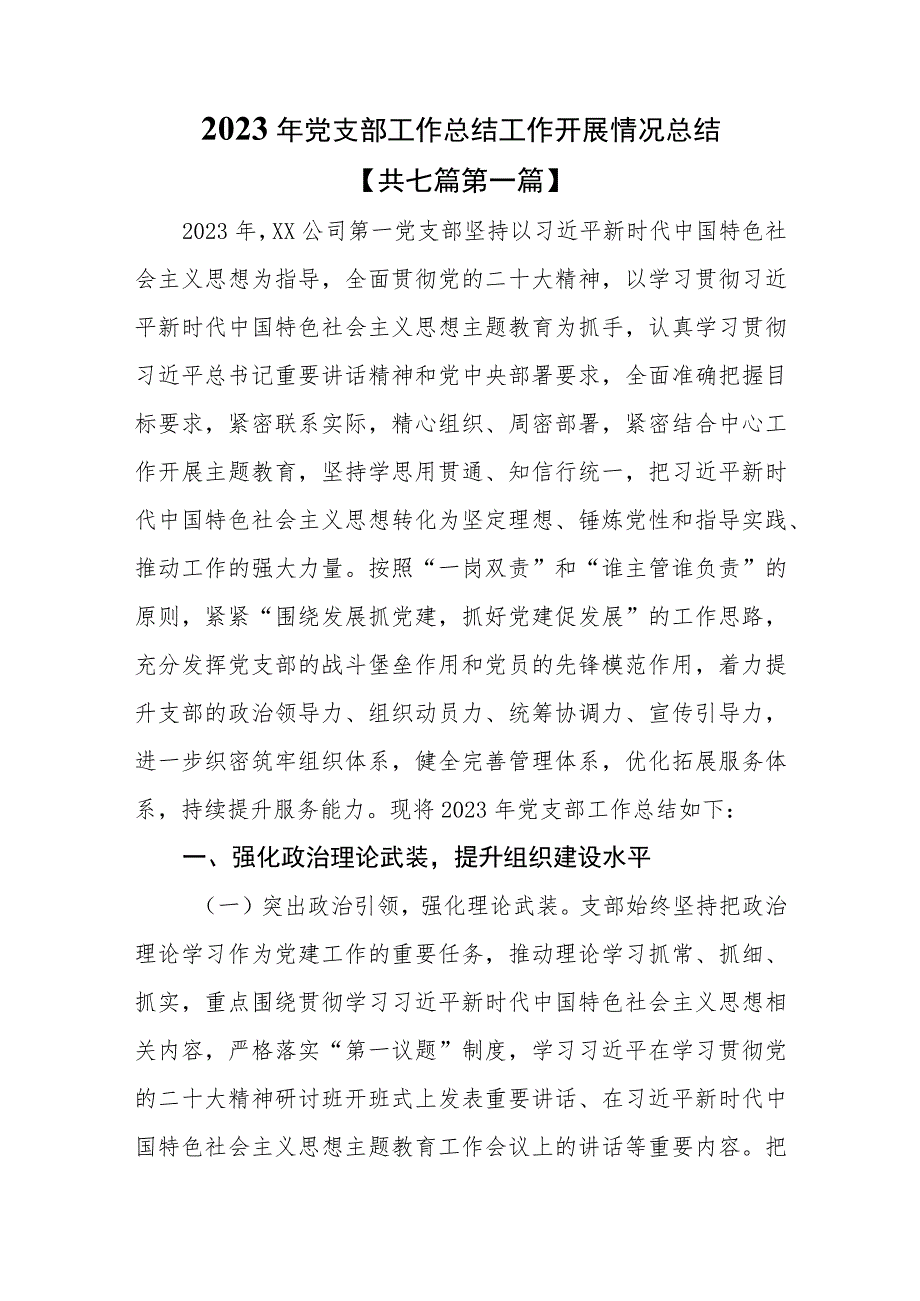 2023年党支部工作总结工作开展情况总结
【共七篇第一篇】
2023 年，XX 公司第一党支部坚持以习近平新时代中国特色社
会主义思想为指导，全面贯彻党的二十大精神，以学习贯彻习近
平新时代中国特色社会主义思想主题教育为抓手，认真学习贯彻
习近平总书记重要讲话精神和党中央部署要求，全面准确把握目
标要求，紧密联系实际，精心组织、周密部署，紧密结合中心工
作开展主题教育，坚持学思用贯通、知信行统一，把习近平新时
代中国特色社会主义思想转化为坚定理想、锤炼党性和指导实践、
推动工作的强大力量。按照“一岗双责”和“谁主管谁负责”的
原则，紧紧“围绕发展抓党建，抓好党建促发展”的工作思路，
充分发挥党支部的战斗堡垒作用和党员的先锋模范作用，着力提
升支部的政治领导力、组织动员力、统筹协调力、宣传引导力，
进一步织密筑牢组织体系，健全完善管理体系，优化拓展服务体
系，持续提升服务能力。现将 2023 年党支部工作总结如下：
一、强化政治理论武装，提升组织建设水平
（一）突出政治引领，强化理论武装。支部始终坚持把政治
理论学习作为党建工作的重要任务，推动理论学习抓常、抓细、
抓实，重点围绕贯彻学习习近平新时代中国特色社会主义思想相
关内容，严格落实“第一议题”制度，学习习近平在学习贯彻党
的二十大精神研讨班开班式上发表重要讲话、在习近平新时代中
国特色社会主义思想主题教育工作会议上的讲话等重要内容。把